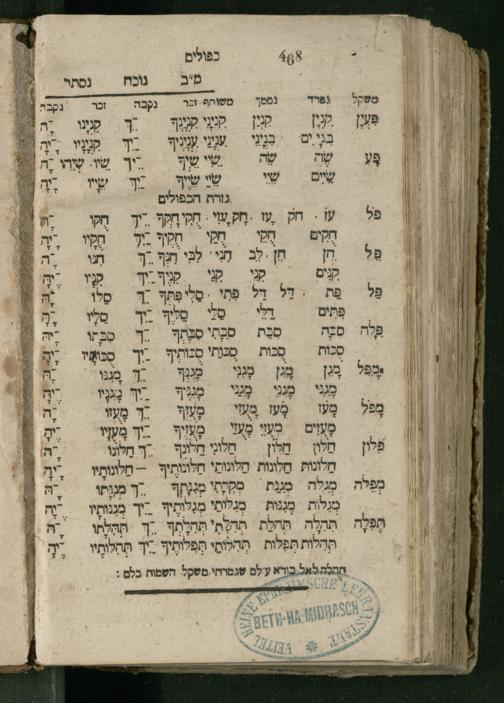 468 כפולים
מ״ב נוכח נסתר
משקל נפרד נסמך משותף זכר נקבה זכר נקבה
קִנְיָן קִנְיַן קִנְיָנִי קִנְיָנְךָ ־ֵךְ קִנְיָנוֹ ־ָהּ
פָּע שֶׂה שֵׂה שֵׂיִי שֵׂיְךָ
שֵׂיִים שֵׂיֵי שֵׂיַי שֵׂיֶיךָ ־ַיִךְ שֵׂיָיו ־ֶיהָ
גזרת הכפולים
פֹּל עֹז · חֹק עָז · חָק עֻזִּי · חֻקִּי חָקְךָ ־ֵךְ חֻקּוֹ ־ָהּ
חֻקִּים חֻקֵּי חֻקַּי חֻקֶּיךָ ־ַיִךְ חֻקָּיו ־ֶיהָ
פֵּל חֵן חֵן · לֶב חִנִּי · לִבִּי חִנְּךָ ־ֵךְ חִנּוֹ ־ָהּ
קִנִּים קִנֵּי קִנַּי קִנֶּיךָ ־ַיִךְ קִנָּיו ־ֶיהָ
פַּל פַּת · דַּל דַּל פִּתִּי · סַלִּי פִּתְּךָ ־ֵךְ סַלּוֹ ־ָהּ
פִּתִּים דַּלֵּי סַלַּי סַלֶּיךָ ־ַיִךְ סַלָּיו ־ֶיהָ
פֻּלָּה סֻכָּה סֻכַּת סֻכָּתִי סֻכָּתְךָ ־ֵךְ סֻכָּתוֹ ־ָהּ
סֻכּוֹת סֻכּוֹת סֻכּוֹתַי סֻכּוֹתֶיךָ ־ַיִךְ סֻכּוֹתָיו ־ֶיהָ
מָפֵל מָגֵן מָגֵן מָגִנִּי מָגִנְּךָ ־ֵךְ מָגִנּוֹ ־ָהּ
מָגִנִּי מָגִנֵּי מָגִנַּי מָגִנֶּיךָ ־ַיִךְ מָגִנָּיו ־ֶיהָ
מָפֹל מָעֹז מָעֹז מָעֻזִּי מָעֻזְּךָ ־ֵךְ מָעֻזּוֹ ־ָהּ
מָעֻזִּים מָעֻזֵּי מָעֻזַּי מָעֻזֶּיךָ ־ַיִךְ מָעֻזָּיו ־ֶיהָ
פַּלּוֹן חַלּוֹן חַלּוֹן חַלּוֹנִי חַלּוֹנְךָ ־ֵךְ חַלּוֹנוֹ ־ָהּ
חַלּוֹנוֹת חַלּוֹנוֹת חַלּוֹנוֹתַי חַלּוֹנוֹתֶיךָ — חַלּוֹנוֹתָיו ־ֶיהָ
מְפִלָּה מְגִלָּה מְגִנַּת מְגִנָּתְךָ ־ֵךְ מְגִנָּתוֹ ־ָהּ
מְגִלּוֹת מְגִנּוֹת מְגִלּוֹתַי מְגִלּוֹתֶיךָ ־ַיִךְ מְגִנּוֹתָיו ־ֶיהָ
תְּפִלָּה תְּהִלָּה תְּהִלַּת תְּהִלָּתִי תְּהִלָּתְךָ ־ֵךְ תְּהִלָּתוֹ ־ָהּ
תְּהִלּוֹת תְּפִלּוֹת תְּהִלּוֹתַי תְּפִלּוֹתֶיךָ ־ַיִךְ תְּהִלּוֹתָיו ־ֶיהָ
תהלה לאל בורא עולם שגמרתי משקל השמות כלם :
VEITEL HEINE EPHRAIMSCHE LEHRANSTALT
BETH-HA-MIDRASCH